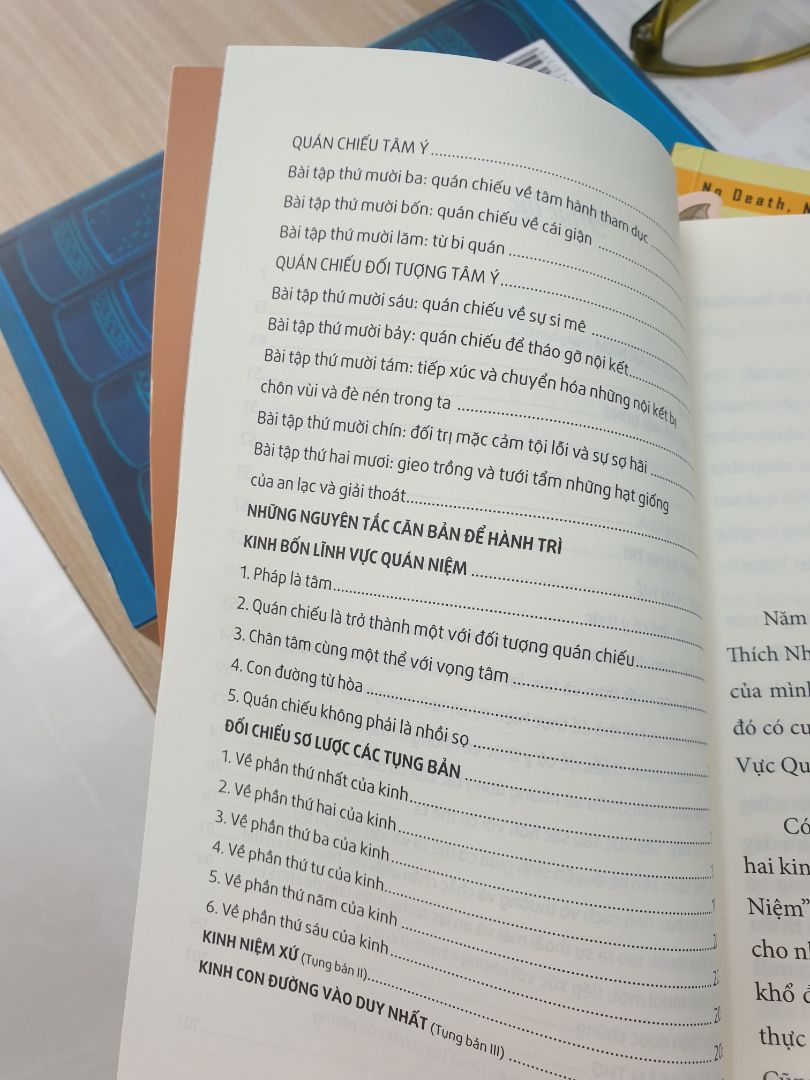 QUÁN CHIẾU TÂM Ý
Bài tập thứ mười ba: quán chiếu về tâm hành tham dục
Bài tập thứ mười bốn: quán chiếu về cái giận
Bài tập thứ mười lăm: từ bi quán
QUÁN CHIẾU ĐỐI TƯỢNG TÂM Ý
Bài tập thứ mười sáu: quán chiếu về sự si mê
Bài tập thứ mười bảy: quán chiếu để tháo gỡ nội kết
Bài tập thứ mười tám: tiếp xúc và chuyển hóa những nội kết bị
chôn vùi và đè nén trong ta
Bài tập thứ mười chín: đối trị mặc cảm tội lỗi và sự sợ hãi
Bài tập thứ hai mươi: gieo trồng và tưới tẩm những hạt giống
của an lạc và giải thoát
NHỮNG NGUYÊN TẮC CĂN BẢN ĐỂ HÀNH TRÌ
KINH BỐN LĨNH VỰC QUÁN NIỆM
1. Pháp là tâm
2. Quán chiếu là trở thành một với đối tượng quán chiếu
3. Chân tâm cùng một thể với vọng tâm
4. Con đường từ hòa
5. Quán chiếu không phải là nhồi sọ
ĐỐI CHIẾU SƠ LƯỢC CÁC TỤNG BẢN
1. Về phần thứ nhất của kinh
2. Về phần thứ hai của kinh
3. Về phần thứ ba của kinh
4. Về phần thứ tư của kinh
5. Về phần thứ năm của kinh
6. Về phần thứ sáu của kinh
KINH NIỆM XỨ (Tụng bản II)
KINH CON ĐƯỜNG VÀO DUY NHẤT (Tụng bản III)
No Death, N
Năm
Thích Nh
của mình
đó có cu
Vực Qu
Có
hai kin
Niệm”
cho nh
khổ đ
thực